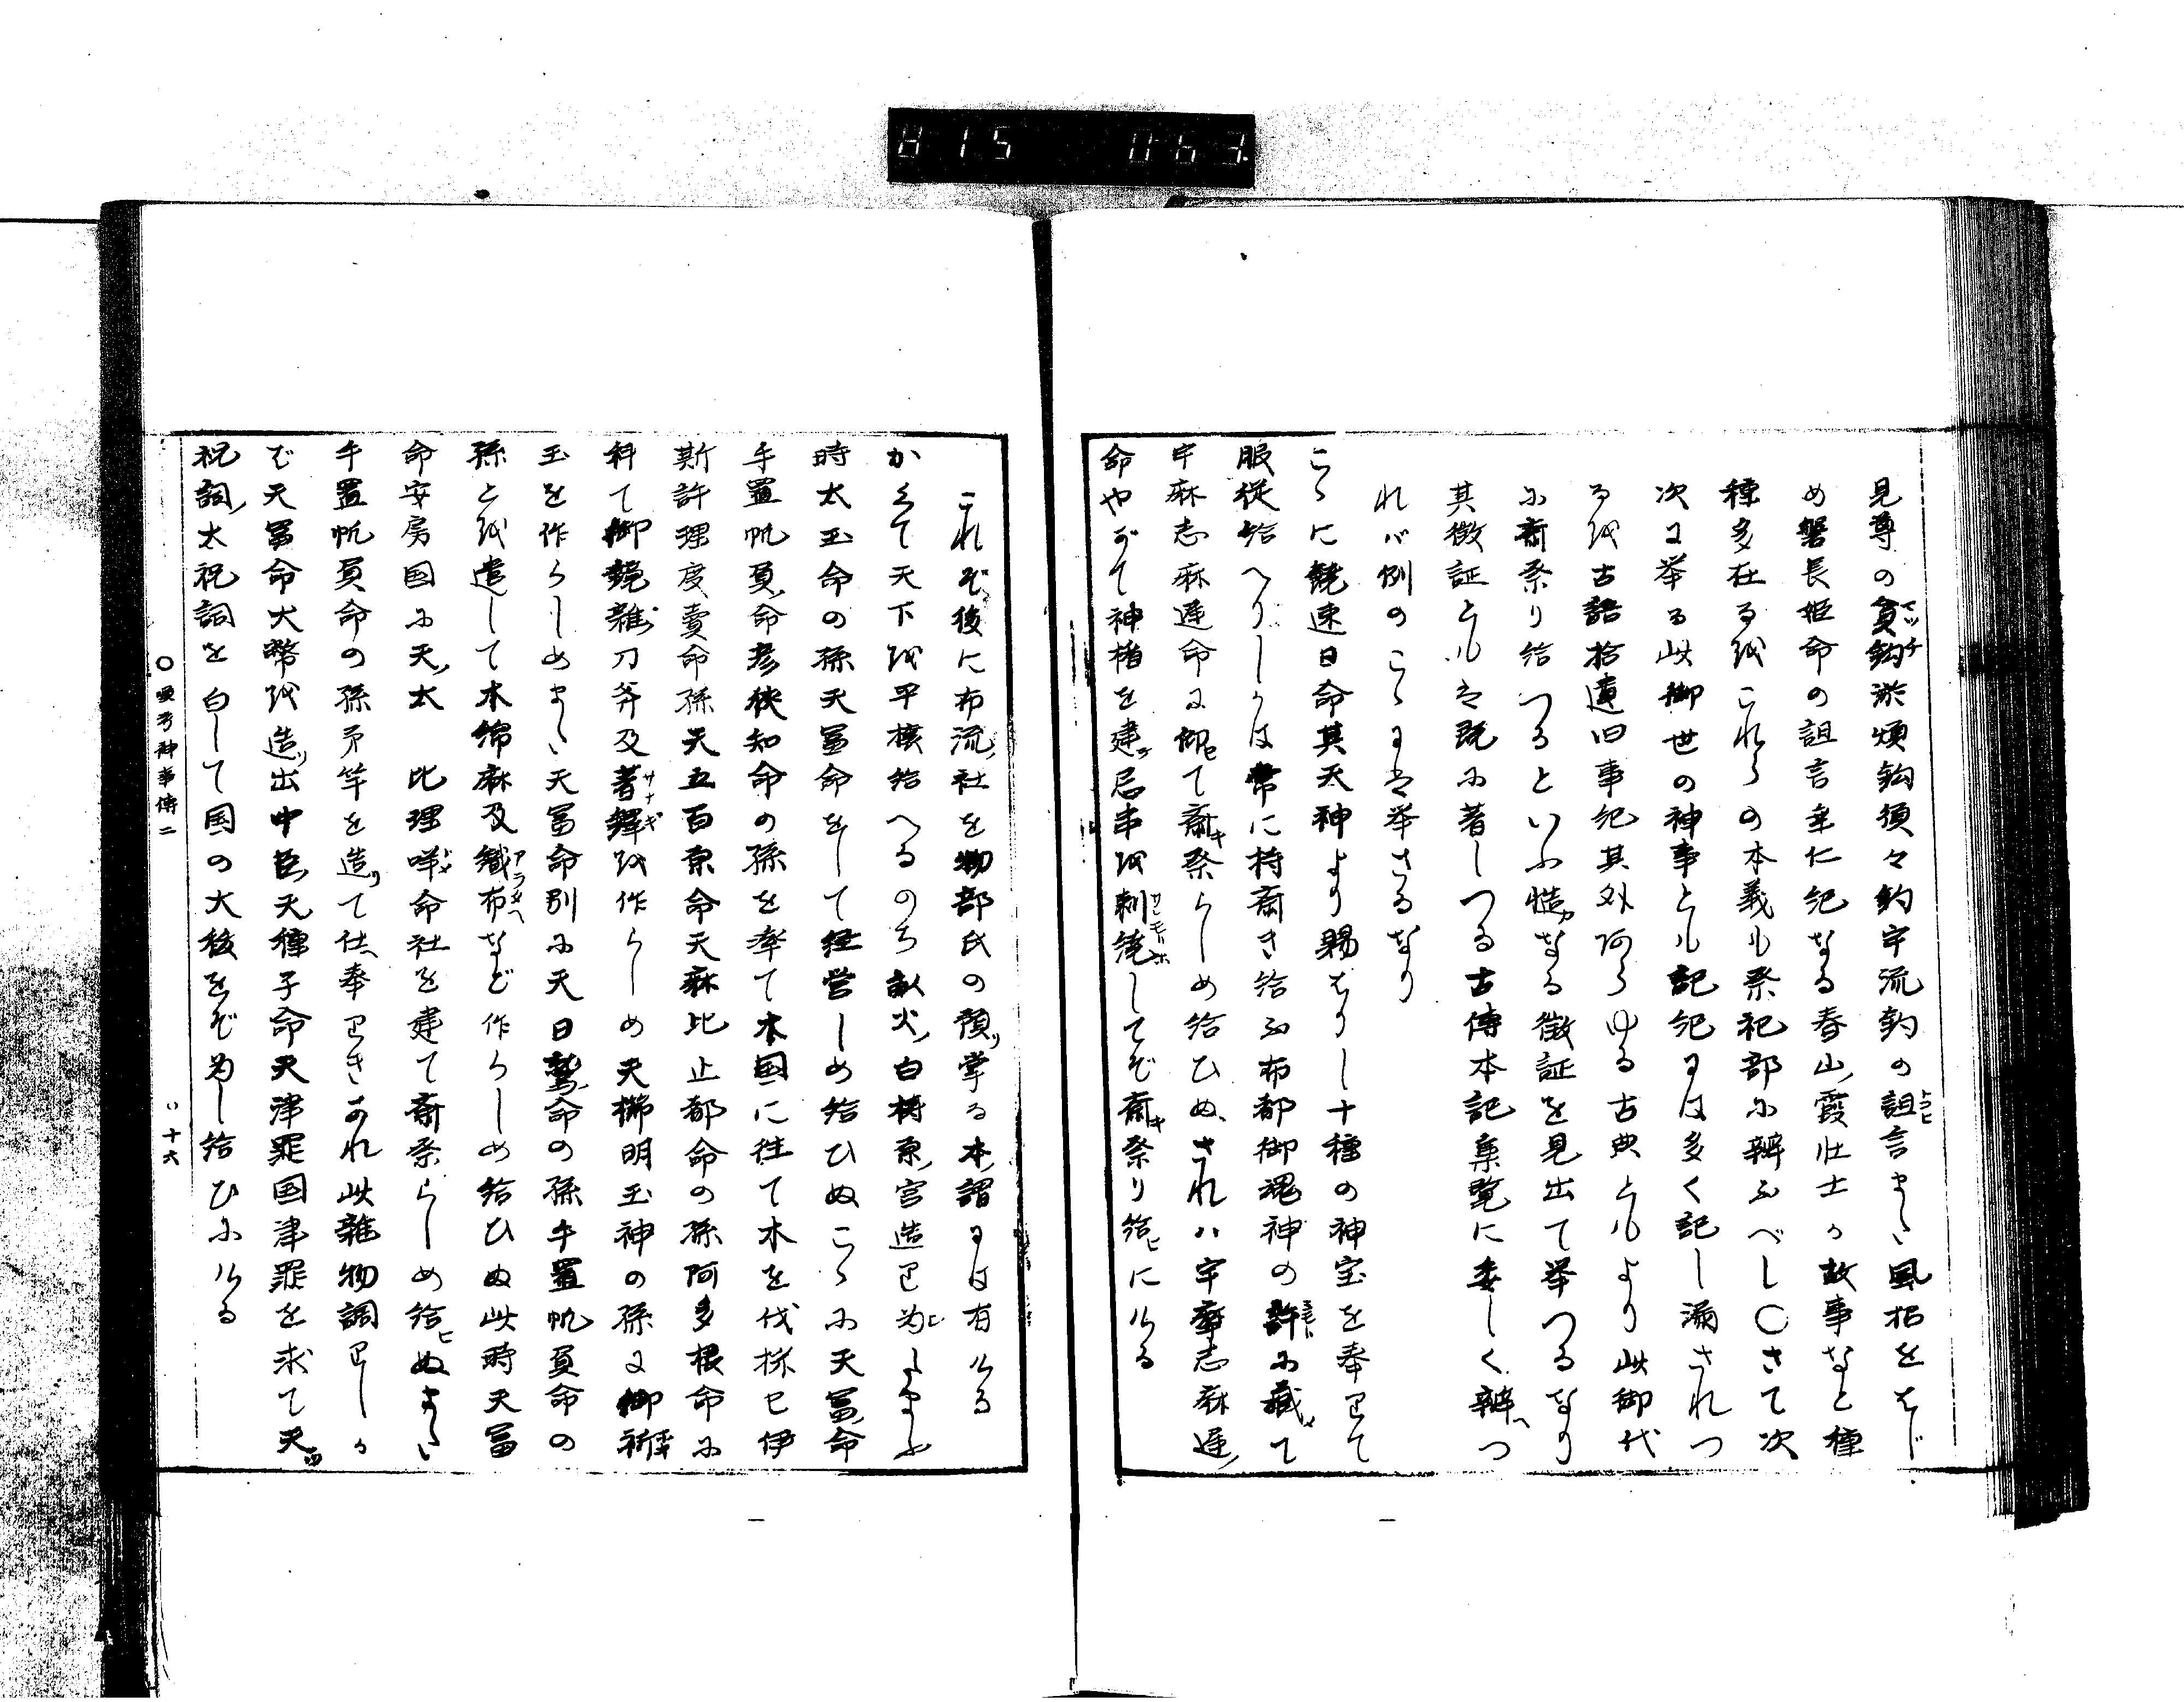 815 063.
見尊の貧鈎淤煩鈎須々鈎宇流鈎の詛言また風招をはじ
め磐長姫命の詛言また仁紀なる春山霞壮士の故事など種
種多在るをこれらの本義も祭祀部に辨ふべし〇さて次
次に挙る此御世の神事ども記紀には多く記し漏されつ
るを古語拾遺旧事紀其外あらゆる古典どもより此御代
に斎祭り給つるといふ慥なる徴証を見出て挙つるなり
其徴証どもは既に著しつる古傳本記集覧に委しく辨つ
れバ例のこゝには挙さるなり
こゝに饒速日命其天神より賜はりし十種の神宝を奉りて
服従給へりしかは常に持斎き給ふ布都御魂神の許に蔵て
宇麻志麻遅命に仰て斎祭らしめ給ひぬされハ宇麻志麻遅
命やがて神楯を建忌串を刺繞してぞ斎祭り給ヒにける
これぞ後に布流社を物部氏の預掌る本謂には有ける
かくて天下を平棲給へるのち畝火白檮原宮造り為したまふ
時太玉命の孫天冨命をして経営しめ給ひぬこゝに天冨命
手置帆負命彦狭知命の孫を率て木国に往て木を伐採セ伊
斯許理度賣命孫天五百原命天麻比止都命の孫阿多根命に
科て御鏡雑刀斧及著鐸を作らしめ天櫛明玉神の孫に御祈
玉を作らしめまた天冨命別に天日鷲命の孫手置帆負命の
孫とを遣して木綿麻及織布など作らしめ給ひぬ此時天冨
命安房国に天太 比理咩命社を建て斎祭らしめ給ヒぬまた
手置帆負命の孫矛竿を造て仕奉りきかれ此雑物調りしか
ば天冨命大幣を造出中臣天種子命天津罪国津罪を求て天
祝詞太祝詞を白して国の大祓をぞ為し給ひにける
神事傳二
十六